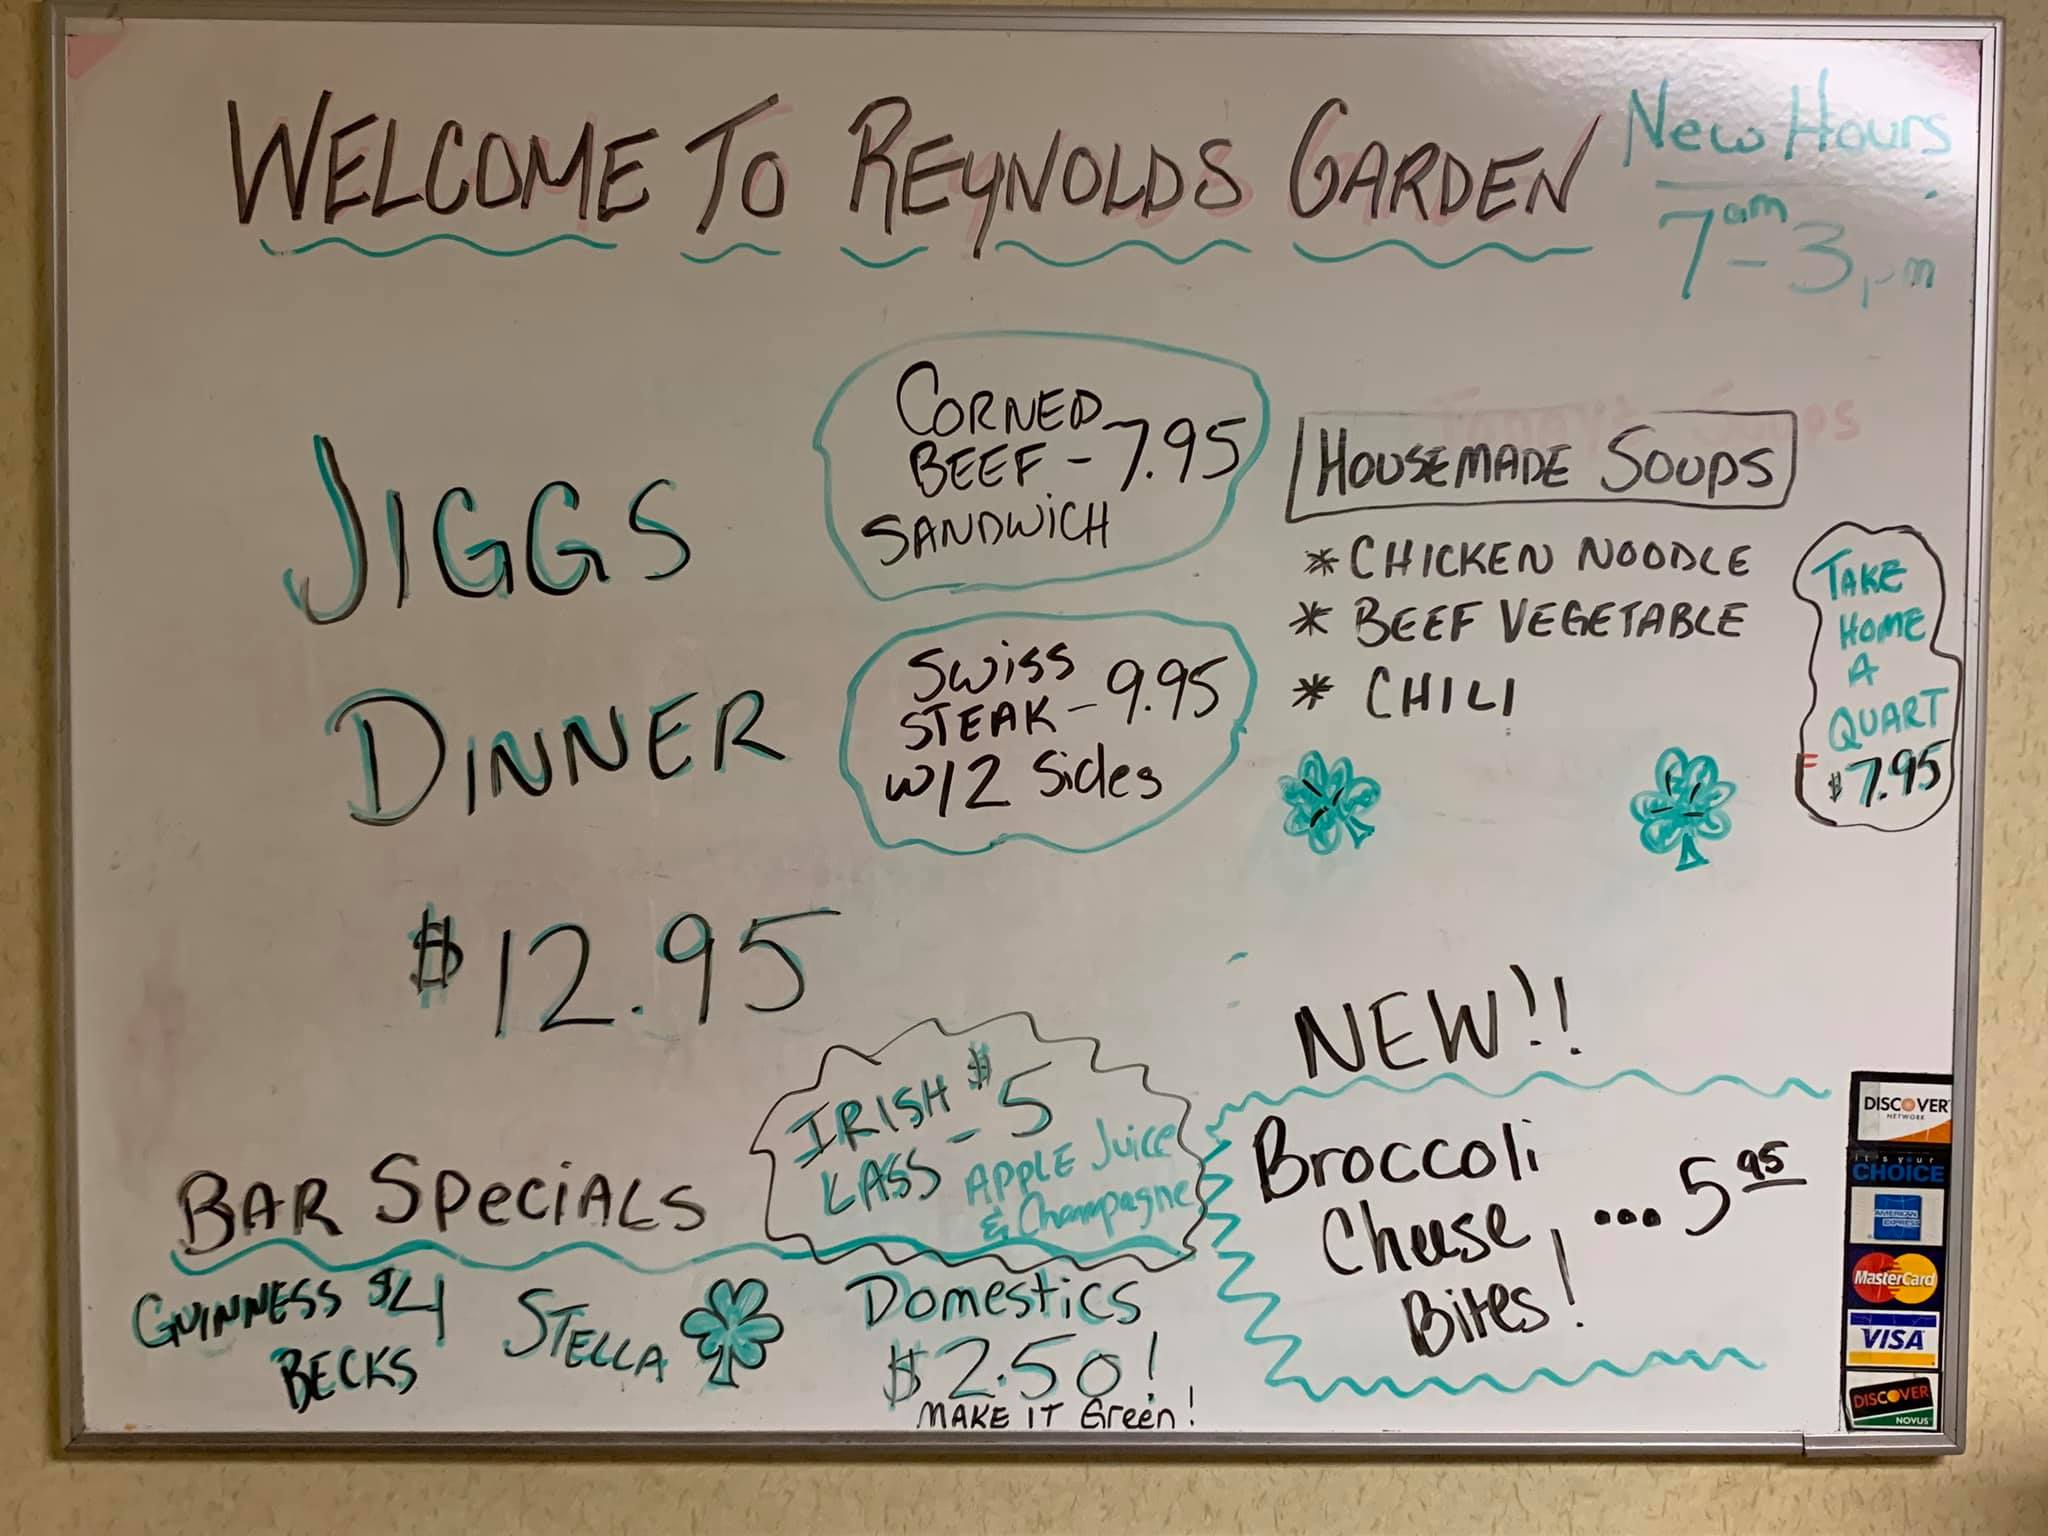 WELCOME TO REYNOLDS GARDEN
New Hours
7am - 3pm
JIGGS
DINNER
$12.95
CORNED
BEEF - 7.95
SANDWICH
SWISS
STEAK - 9.95
W/2 Sides
HOUSEMADE SOUPS
* CHICKEN NOODLE
* BEEF VEGETABLE
* CHILI
TAKE
HOME
A
QUART
$7.95
BAR SPECIALS
IRISH $5
LASS -
APPLE Juice
& Champagne
GUINNESS $4
BECKS
STELLA
DOMESTICS
$2.50!
MAKE IT Green!
NEW!!
Broccoli
Cheese, ... 5 95
Bites!
DISCOVER
NETWORK
it's your
CHOICE
AMERICAN
EXPRESS
MasterCard
VISA
DISCOVER
NOVUS